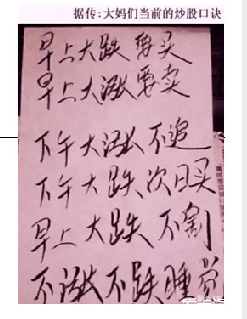 据传:大妈们当前的炒股口诀
早上大跌要买
早上大涨要卖
下午大涨不追
下午大跌次日买
早上大跌不割
不涨不跌睡觉